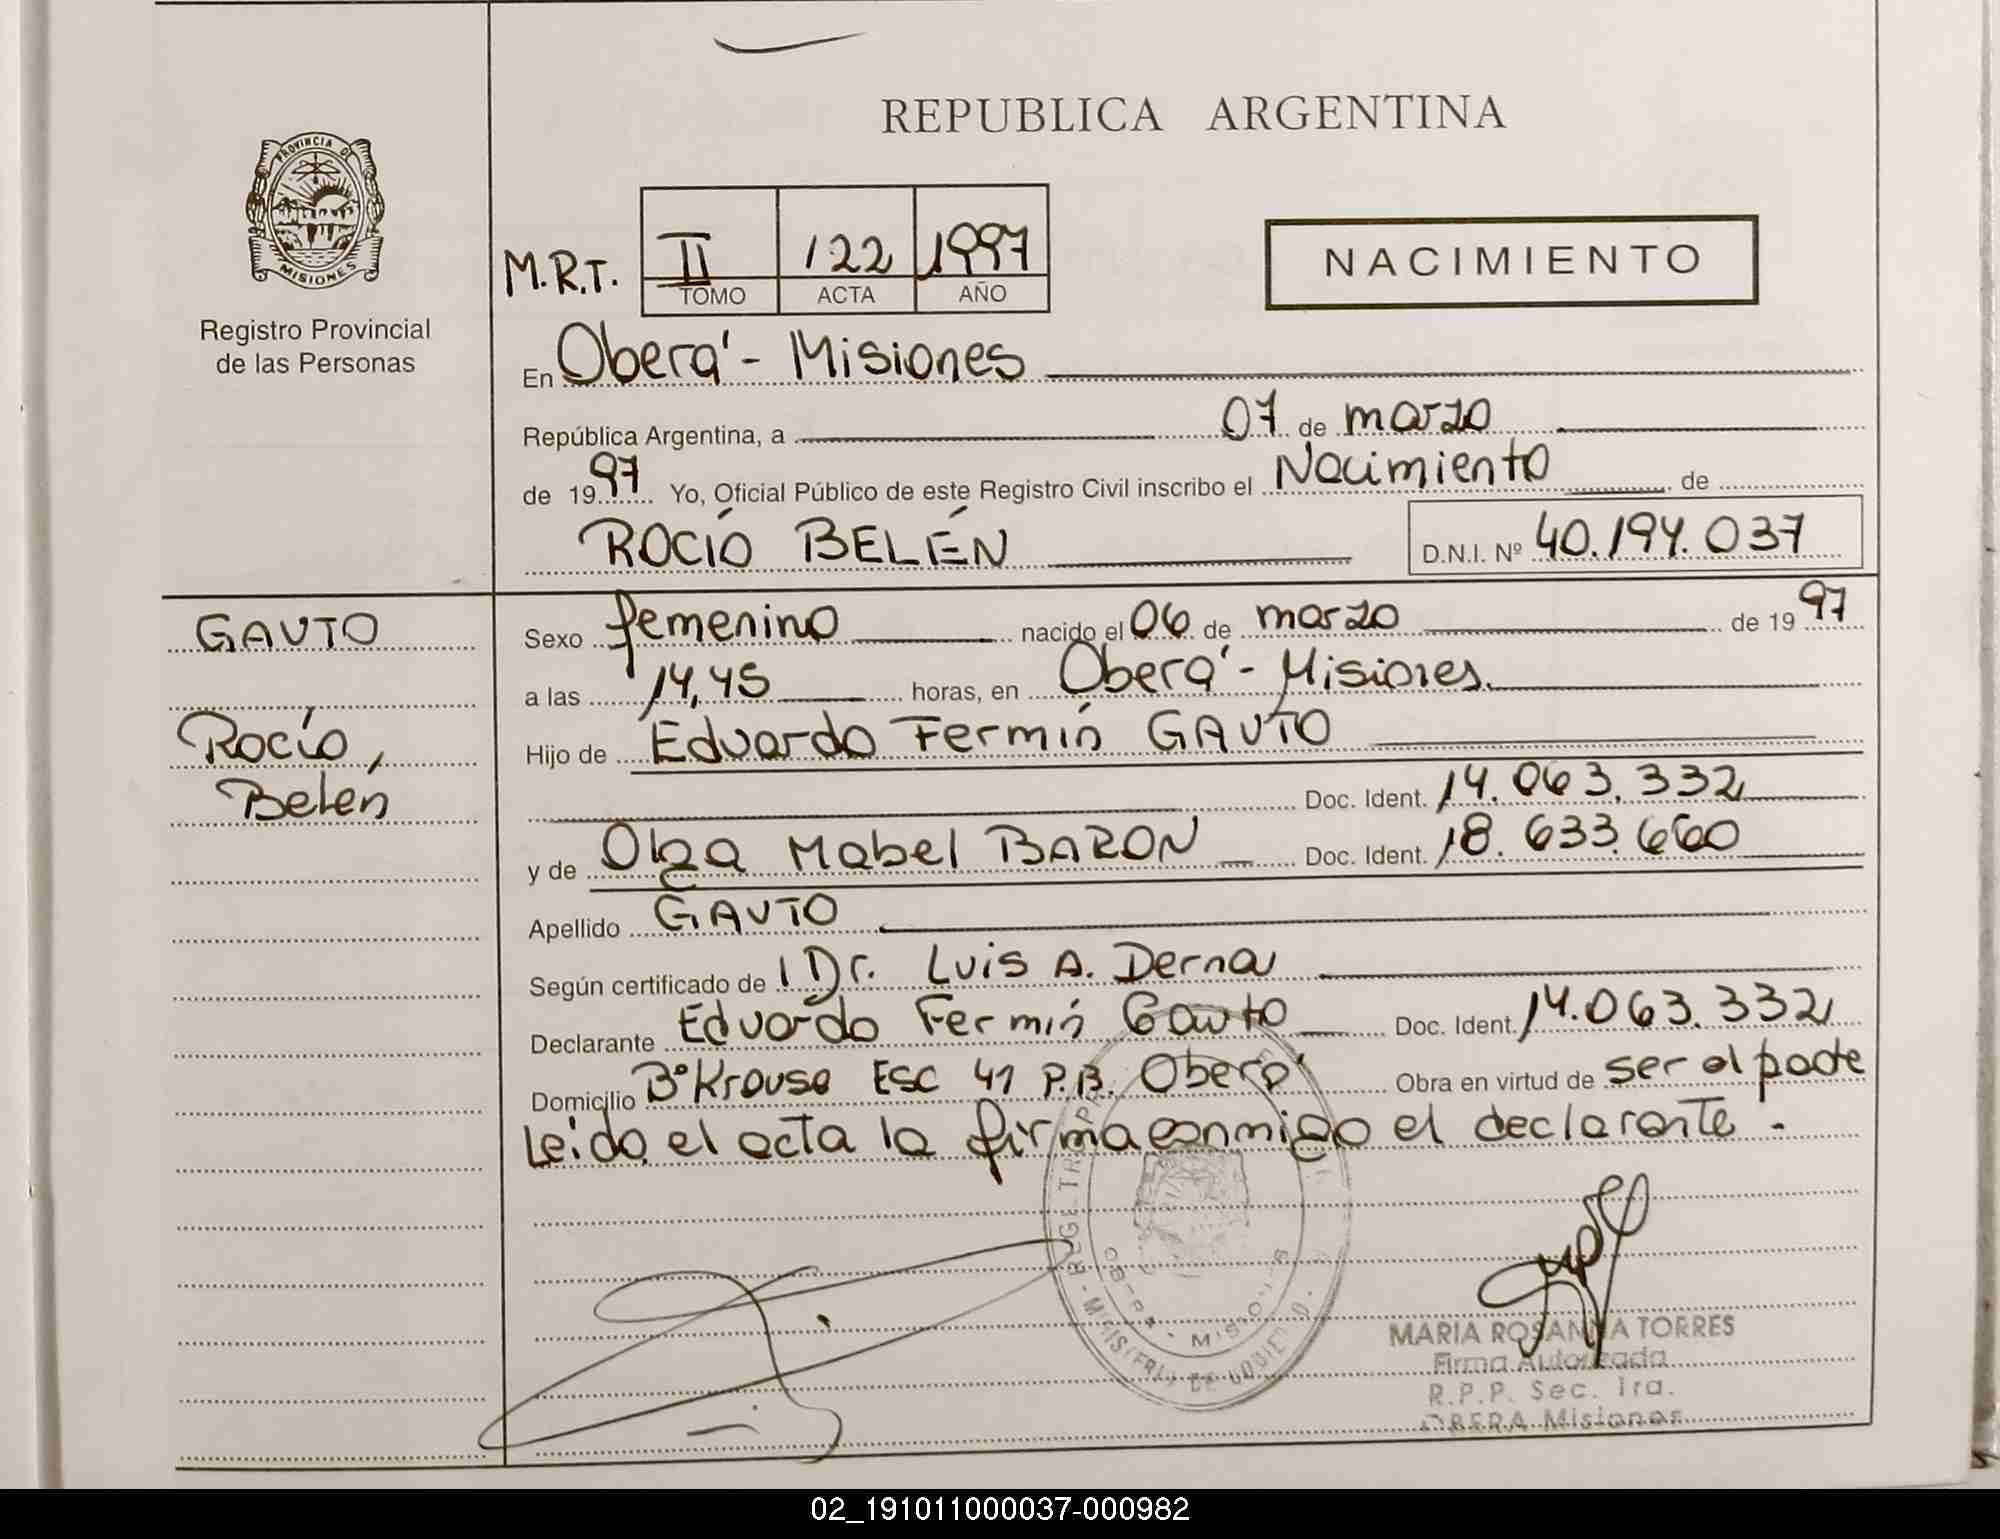 REPUBLICA ARGENTINA
PROVINCIA DE
MISIONES
Registro Provincial
de las Personas
M.R.T. II 122 1997
TOMO ACTA AÑO
NACIMIENTO
En Oberá - Misiones
República Argentina, a 07 de marzo
de 1997 Yo, Oficial Público de este Registro Civil inscribo el Nacimiento de
ROCÍO BELÉN D.N.I. Nº 40.194.037
GAUTO
Rocío,
Belén
Sexo femenino nacido el 06 de marzo de 1997
a las 14,45 horas, en Oberá - Misiones.
Hijo de Eduardo Fermín GAUTO
Doc. Ident. 14.063.332
y de Olga Mabel BARON Doc. Ident. 18.633.660
Apellido GAUTO
Según certificado de Dr. Luis A. Derna
Declarante Eduardo Fermín Gauto Doc. Ident. 14.063.332
Domicilio Bº Krause Esc 41 P.B. Oberá Obra en virtud de ser el padre
Leido el acta la firma conmigo el declarante.
OBERA - MISIONES
MARIA ROSANNA TORRES
Firma Autorizada
R.P.P. Sec. 1ra.
OBERA Misiones
02_191011000037-000982